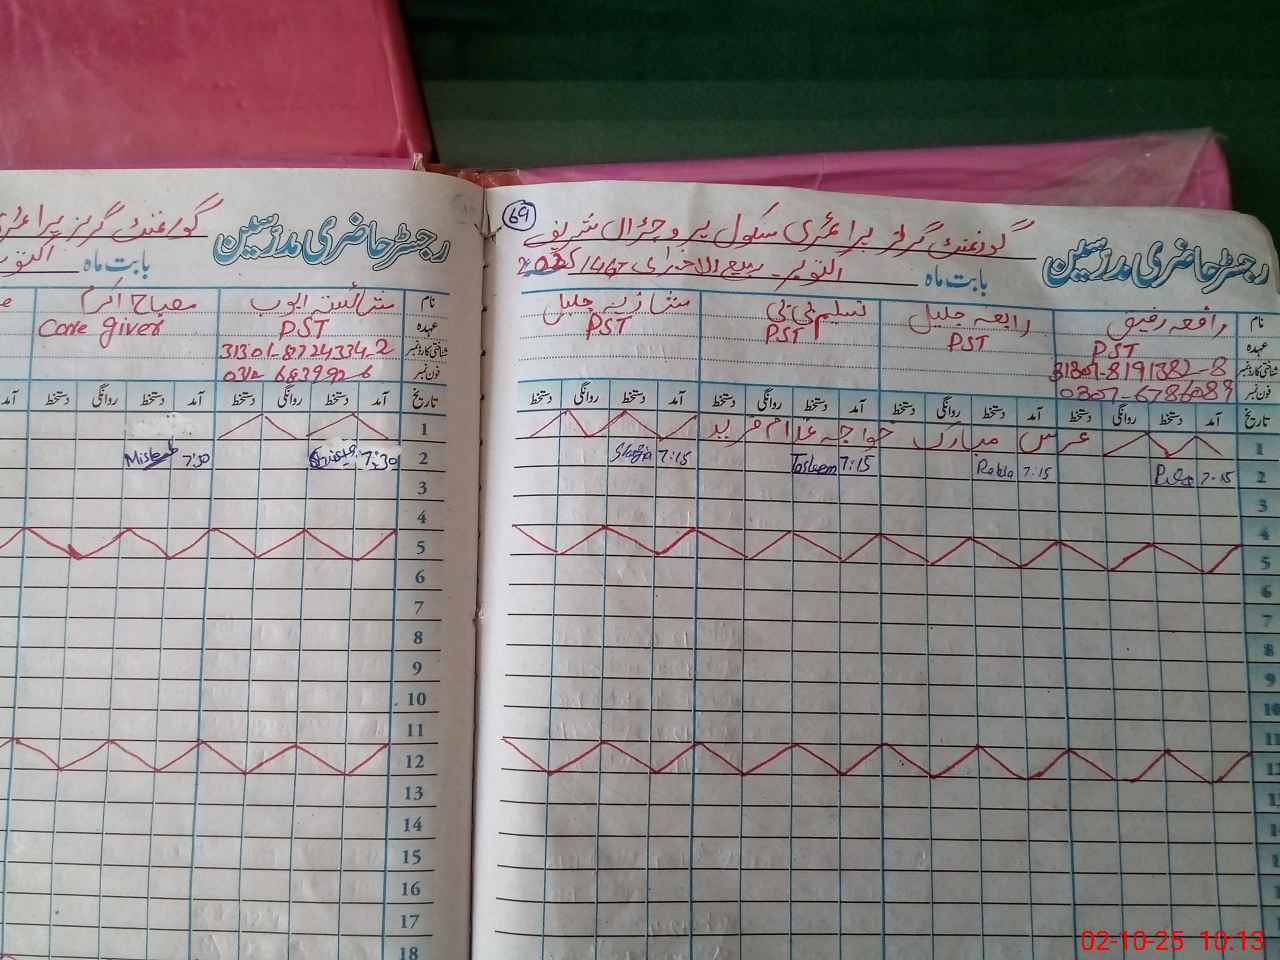 69
گورنمنٹ گرلز پرائمری سکول پیر و جڑال شریف
رجسٹر حاضری مدرسین
بابت ماہ اکتوبر - ربیع الاخر
نام رافعہ رفیق رابعہ جلیل تسلیم بی بی شازیہ جلیل
عہدہ PST PST PST PST
شناختی کارڈ نمبر 31301-8191382-8
فون نمبر 0307-6786089
تاریخ آمد دستخط روانگی دستخط آمد دستخط روانگی دستخط آمد دستخط روانگی دستخط آمد دستخط روانگی دستخط
1 عرس مبارک خواجہ غلام فرید
2 7:15 7:15 Rabia 7:15 Tasleem 7:15 Shazia
3
4
5
6
7
8
9
10
11
12
گورنمنٹ گرلز پرائمری
رجسٹر حاضری مدرسین
بابت ماہ اکتوبر
نام شائستہ ایوب مصباح اکرم
عہدہ PST Care giver
شناختی کارڈ نمبر 31301-8724334-2
فون نمبر
تاریخ آمد دستخط روانگی دستخط آمد دستخط روانگی دستخط آمد
1
2 7:30 7:30 Misbah
3
4
5
6
7
8
9
10
11
12
13
14
15
16
17
18
02-10-25 10:13